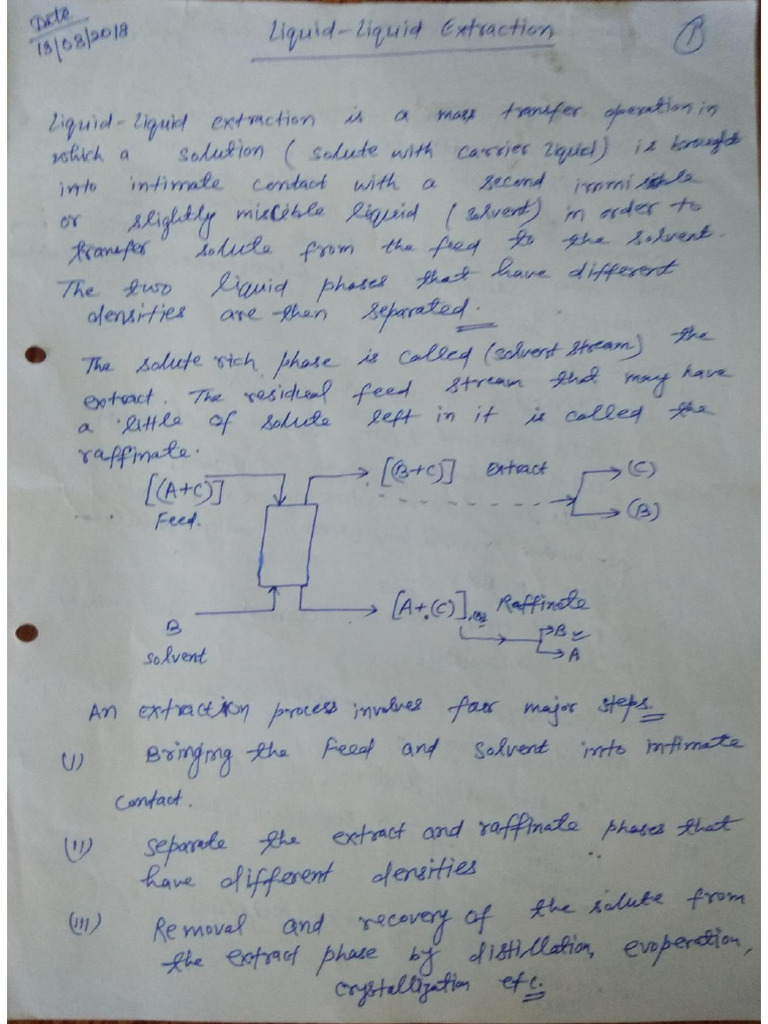 Date
13/08/2018
Liquid-Liquid Extraction
1
Liquid-Liquid extraction is a mass transfer operation in
which a solution (solute with carrier liquid) is brought
into intimate contact with a second immisible
or slightly miscible liquid (solvent) in order to
transfer solute from the feed to the solvent.
The two liquid phases that have different
densities are then separated.
The solute rich phase is called (solvent stream) the
extract. The residual feed stream that may have
a little of solute left in it is called the
raffinate.
[(A+C)]
Feed.
[(B+C)] Extract
(C)
(B)
[A+(C)] Raffinate
B
A
B
solvent
An extraction process involves four major steps.
(I) Bringing the Feed and Solvent into intimate
contact.
(II) separate the extract and raffinate phases that
have different densities
(III) Removal and recovery of the solute from
the extract phase by distillation, evoperation,
crystallization etc.